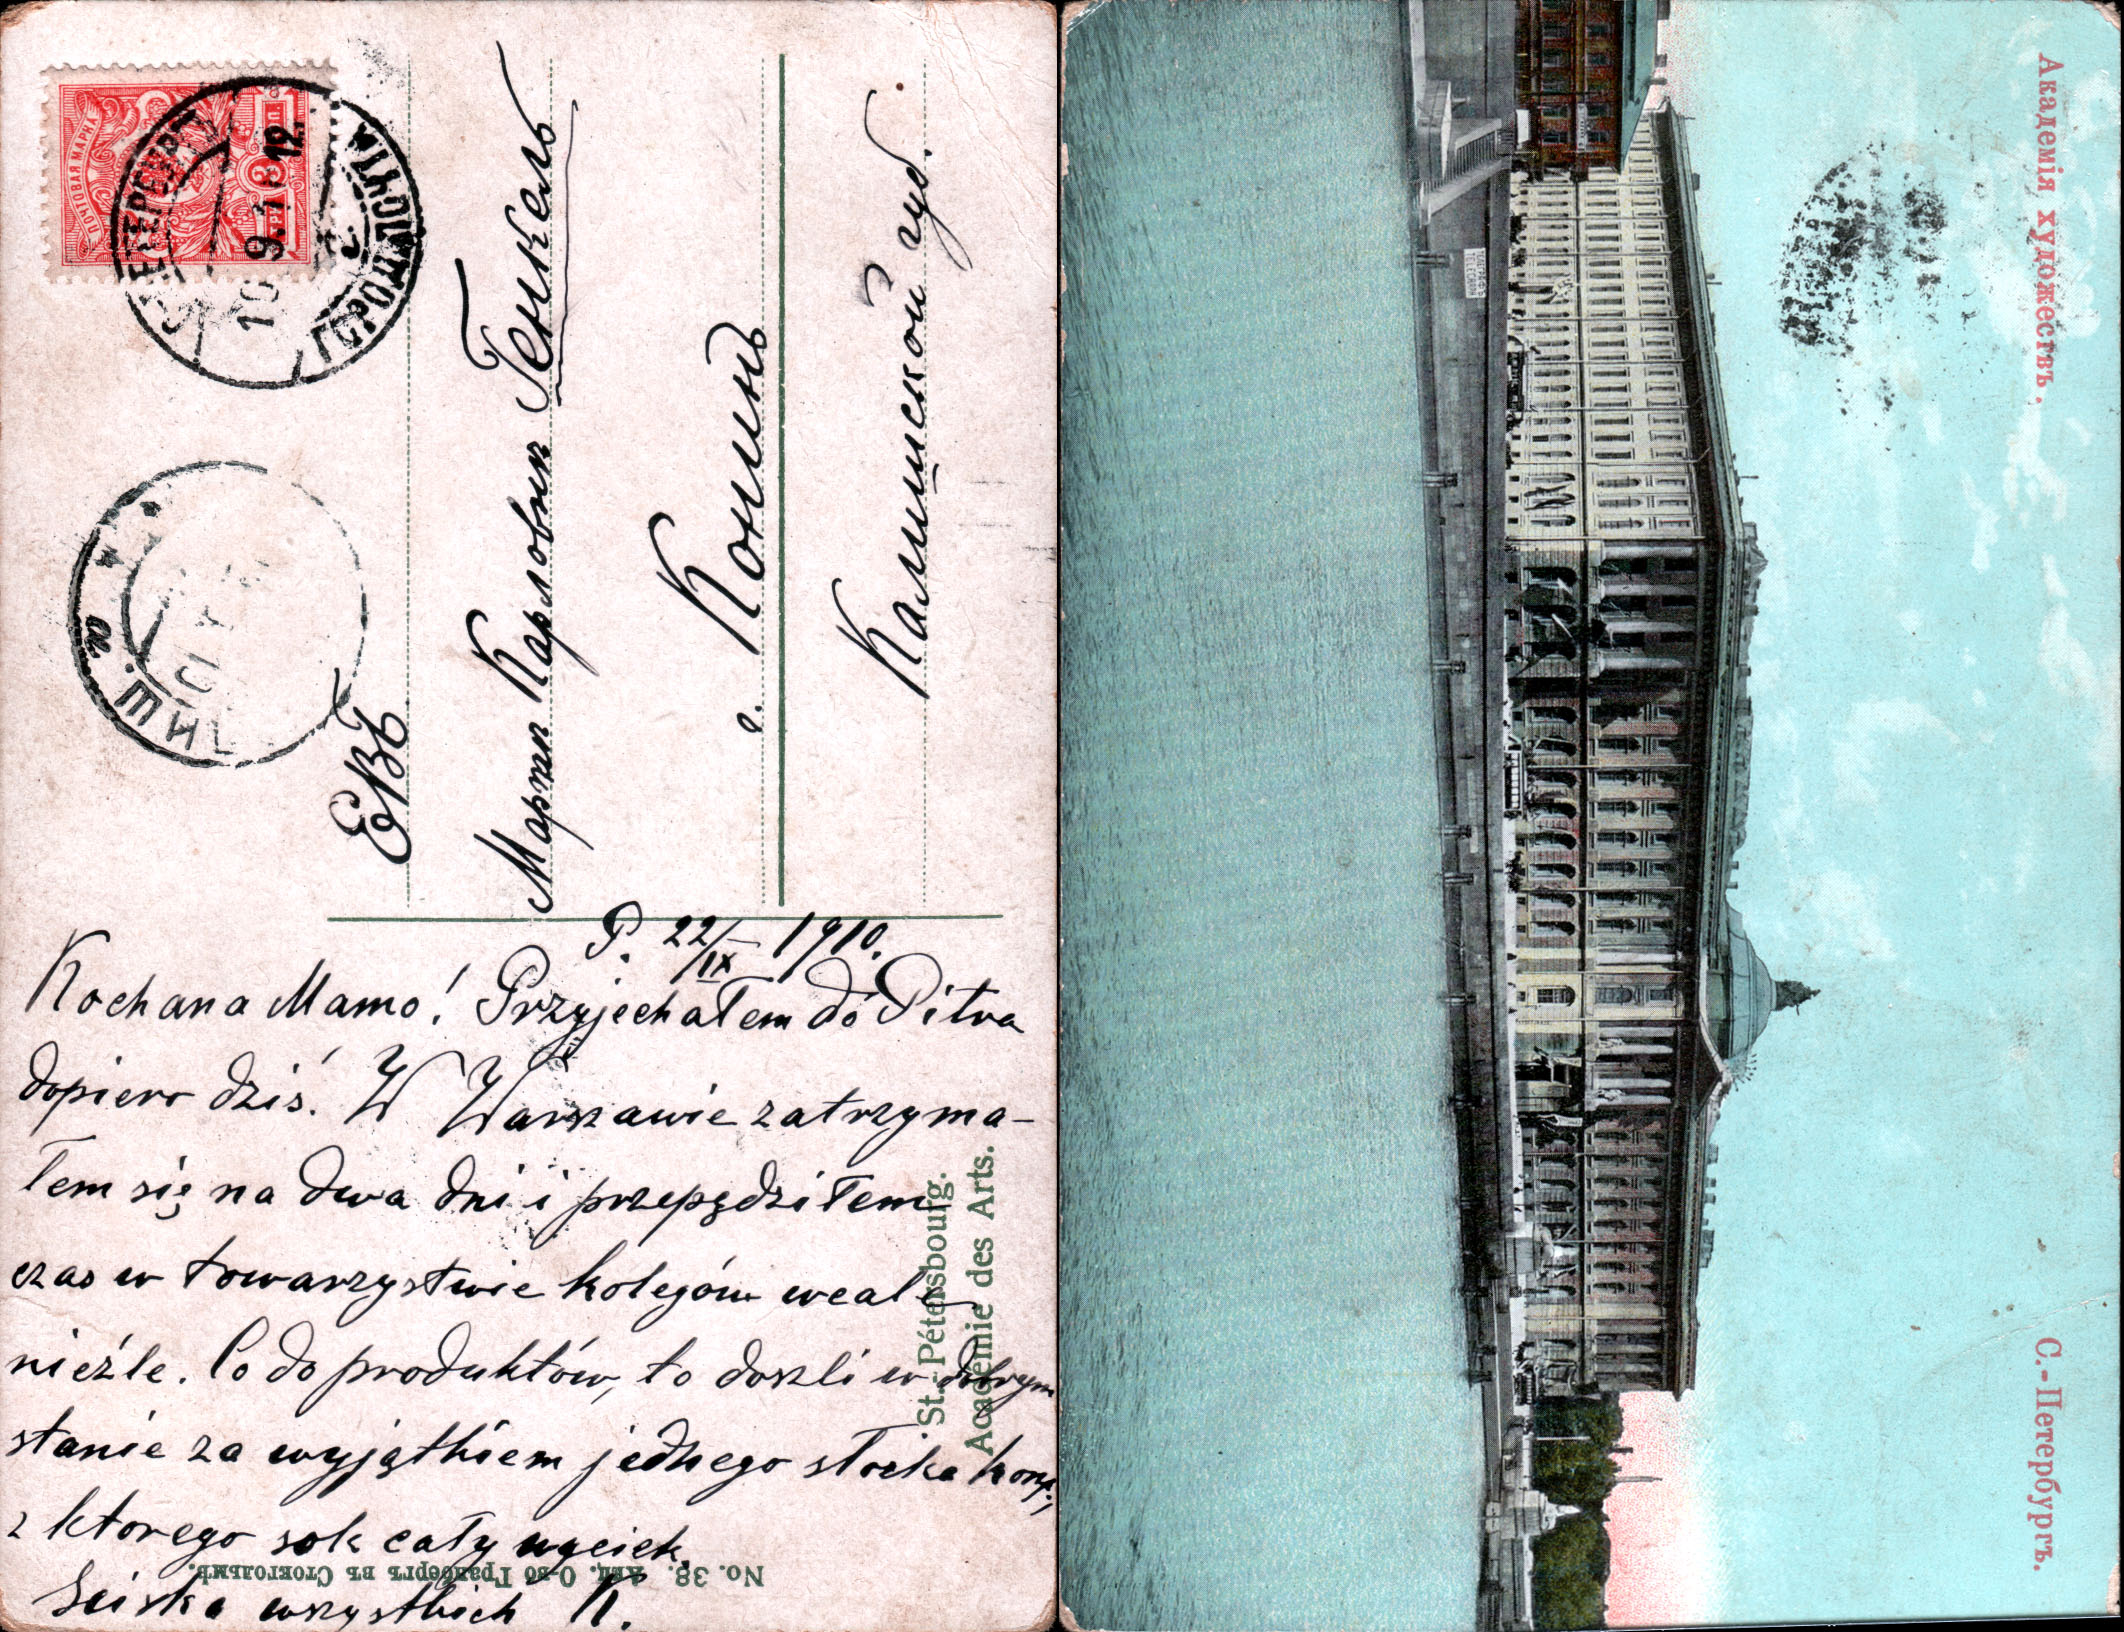 ПОЧТОВАЯ МАРКА
С. ПЕТЕРБУРГЪ
9.9.10 12
ГОР. ПОЧТА
ЛИШ.
ЕВБ
Маріи Карловнѣ Генкель
г. Конинъ
Калишской губ.
P. 22/IX 1910.
Kochana Mamo! Przyjechałem do Pitra
dopiero dziś. W Warszawie zatrzyma-
łem się na dwa dni i przepędziłem
czas w towarzystwie kolegów wcale
nieźle. Co do produktów, to doszli w dobrym
stanie za wyjątkiem jednego słoika konf.,
z którego sok cały wyciek.
Ściska wszystkich K.
St.-Pétersbourg.
Académie des Arts.
No. 38. Акц. О-во Гранбергъ въ Стокгольмѣ.
Академія художествъ.
С.-Петербургъ.